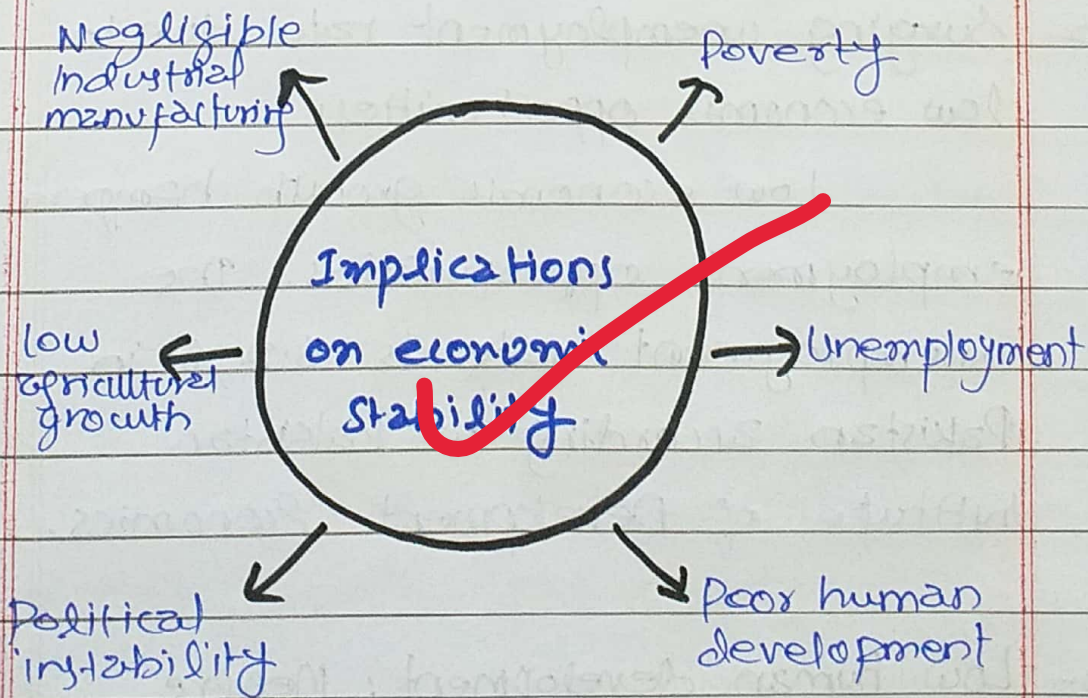 Negligible
industrial
manufacturing
Poverty
Implications
on economic
stability
Unemployment
low
agricultural
growth
Political
instability
Poor human
development